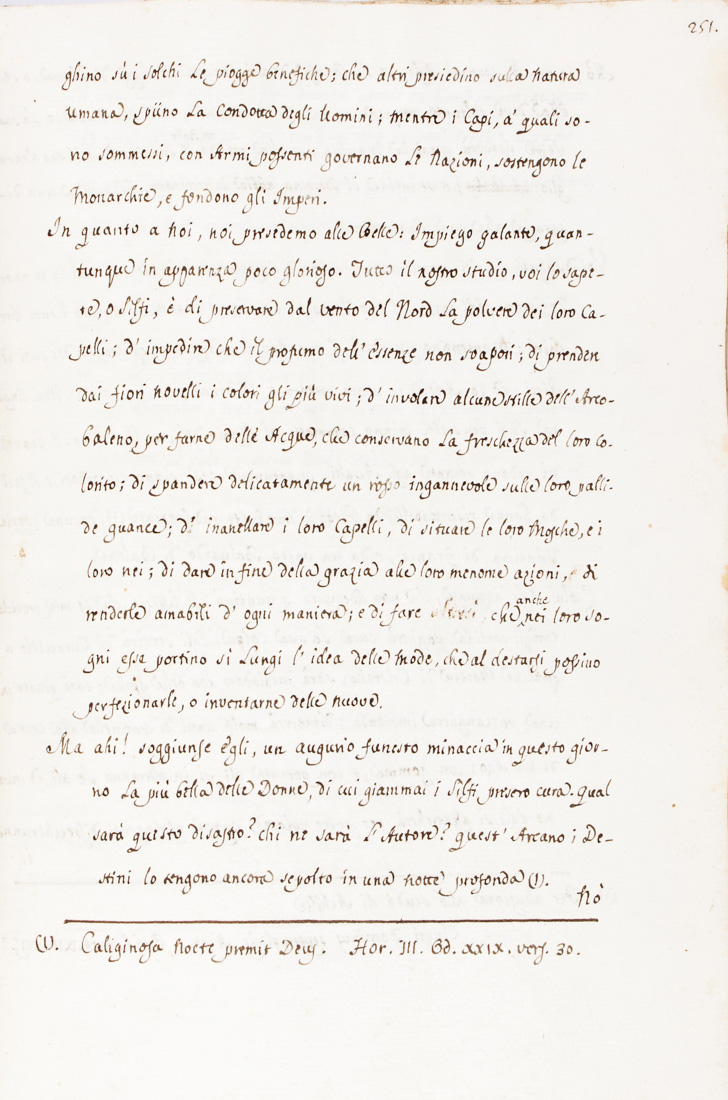 251.
ghino sù i solchi Le piogge benefiche; che altri presiedino sulla natura
umana, spiino La Condotta degli Uomini; mentre i Capi, a' quali so-
no sommessi, con Armi possenti governano Le Nazioni, sostengono le
Monarchie, e fondono gli Imperi.
In quanto a noi, noi presedemo alle Belle: Impiego galante, quan-
tunque in apparenza poco glorioso. Tutto il nostro studio, voi lo sape-
te, o Silfi, è di preservare dal vento del Nord La polvere dei loro Ca-
pelli; d' impedire che il profumo dell' essenze non svapori; di prendere
dai fiori novelli i colori gli più vivi; d' involare alcune stille dell' Arco-
baleno, per farne delle Acque, che conservano La freschezza del loro co-
lorito; di spandere delicatamente un rosso ingannevole sulle loro palli-
de guance; d' inanellare i loro Capelli, di situare le loro Mosche, e i
loro nei; di dare in fine della grazia alle loro menome azioni, di
renderle amabili d' ogni maniera; e di fare che anche nei loro so-
gni esse portino sì Lungi l' idea delle mode, che al destarsi possino
perfezionarle, o inventarne delle nuove.
Ma ahi! soggiunse egli, un augurio funesto minaccia in questo gior-
no La più bella delle Donne, di cui giammai i Silfi presero cura. Qual
sarà questo disastro? chi ne sarà l' Autore? quest' Arcano i De-
stini lo tengono ancora sepolto in una notte profonda (1).
Nò
(1). Caliginosa nocte premit Deus. Hor. III. Od. XXIX. vers. 30.